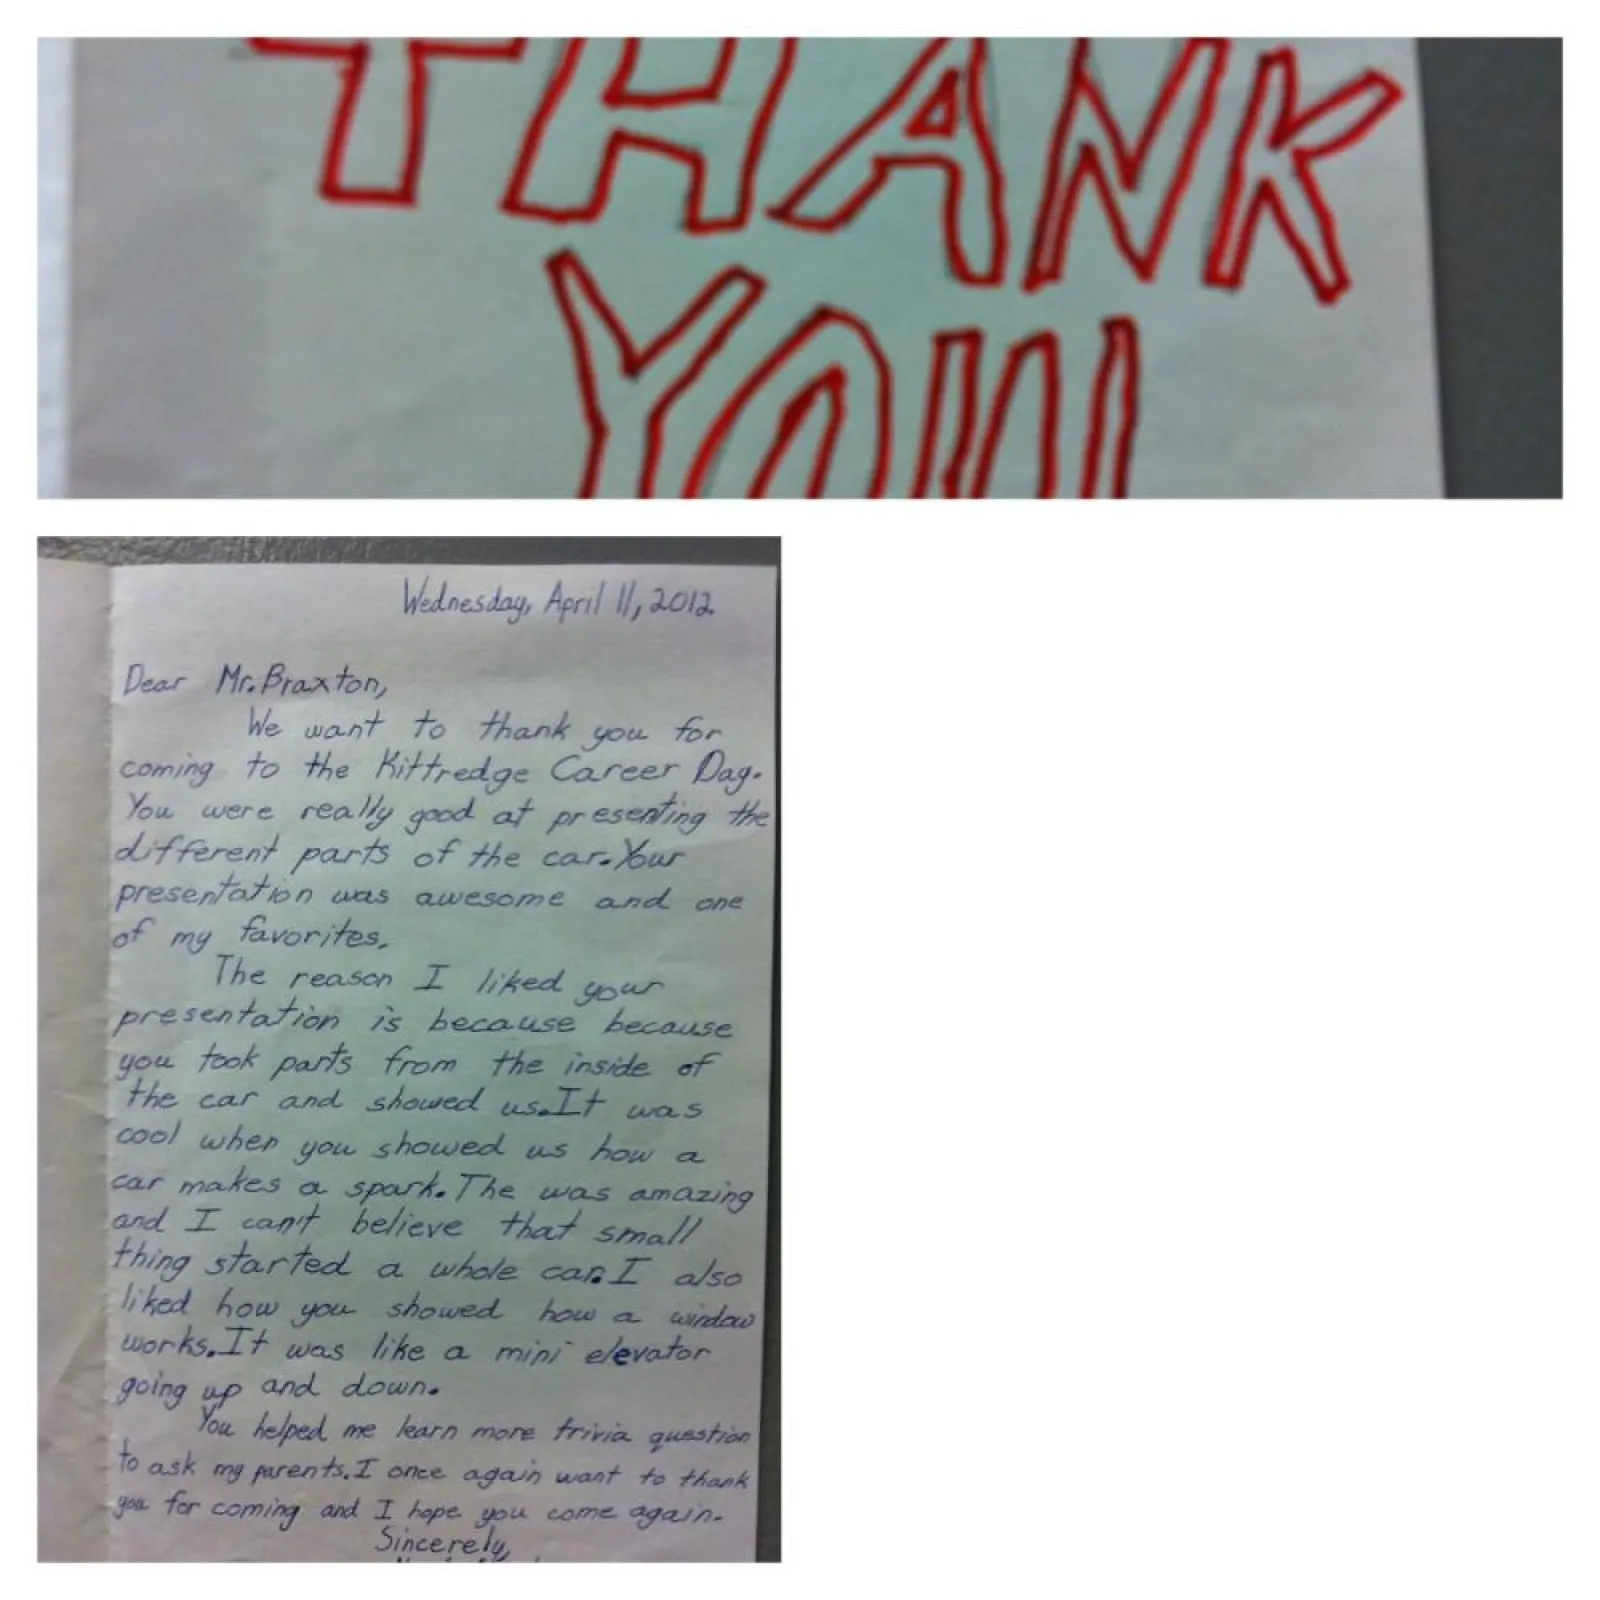 THANK
YOU
Wednesday, April 11, 2012
Dear Mr. Braxton,
We want to thank you for
coming to the Kittredge Career Day.
You were really good at presenting the
different parts of the car. Your
presentation was awesome and one
of my favorites.
The reason I liked your
presentation is because because
you took parts from the inside of
the car and showed us. It was
cool when you showed us how a
car makes a spark. The was amazing
and I can't believe that small
thing started a whole car. I also
liked how you showed how a window
works. It was like a mini elevator
going up and down.
You helped me learn more trivia question
to ask my parents. I once again want to thank
you for coming and I hope you come again.
Sincerely,